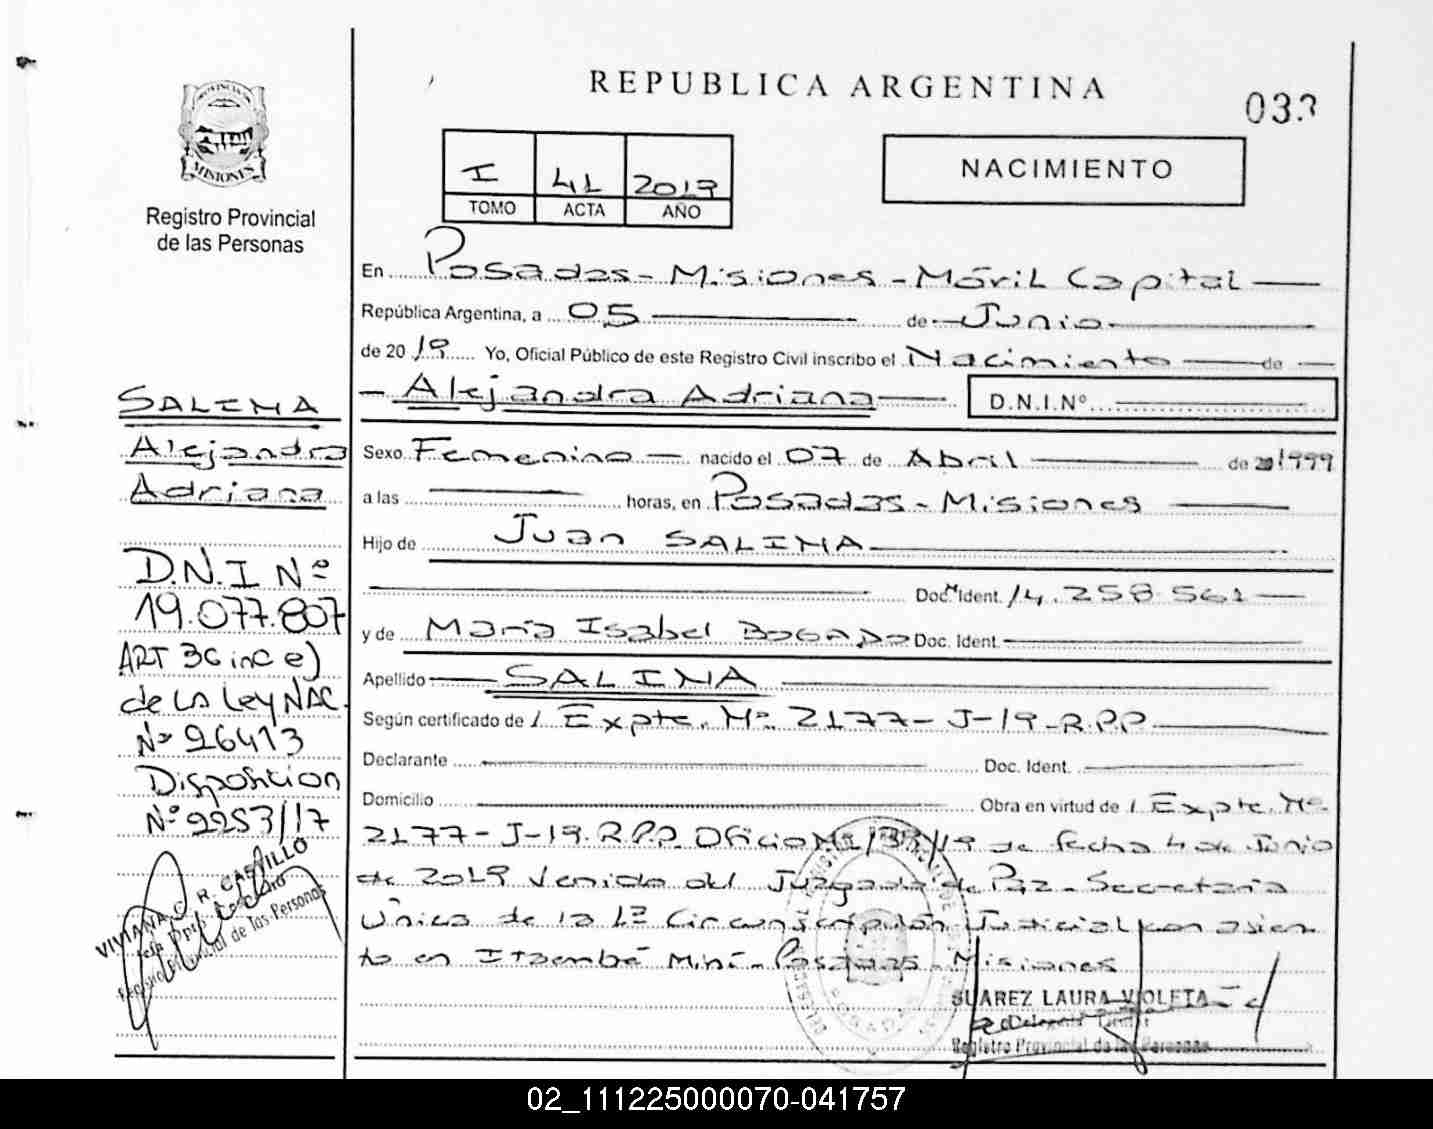 REPUBLICA ARGENTINA
033
PROVINCIA DE
MISIONES
Registro Provincial
de las Personas
I 41 2019
TOMO ACTA AÑO
NACIMIENTO
En Posadas - Misiones - Móvil Capital
República Argentina, a 05 de Junio
de 2019 Yo, Oficial Público de este Registro Civil inscribo el Nacimiento de
Alejandra Adriana D.N.I.Nº
Sexo Femenino nacido el 07 de Abril de 1999
a las horas, en Posadas - Misiones
Hijo de Juan SALINA
Doc. Ident. 14.258.561
y de María Isabel BOGADO Doc. Ident.
Apellido SALINA
Según certificado de / Expte. Nº 2177-J-19-R.P.P
Declarante Doc. Ident.
Domicilio Obra en virtud de / Expte. Nº
2177-J-19.R.P.P Oficio Nº /19 de fecha 4 de Junio
de 2019 venido del Juzgado de Paz - Secretaría
Única de la 1ª Circunscripción Judicial con asien
to en Itaembé Miní - Posadas - Misiones
SUAREZ LAURA VIOLETA
Delegada Titular
Registro Provincial de las Personas
SALINA
Alejandra
Adriana
D.N.I Nº
19.077.807
ART 36 inc e)
de la Ley NAC.
Nº 26413
Disposicion
Nº 2253/17
VIVIANA C. R. CASTILLO
Jefe Dpto
Registro Provincial de las Personas
02_111225000070-041757